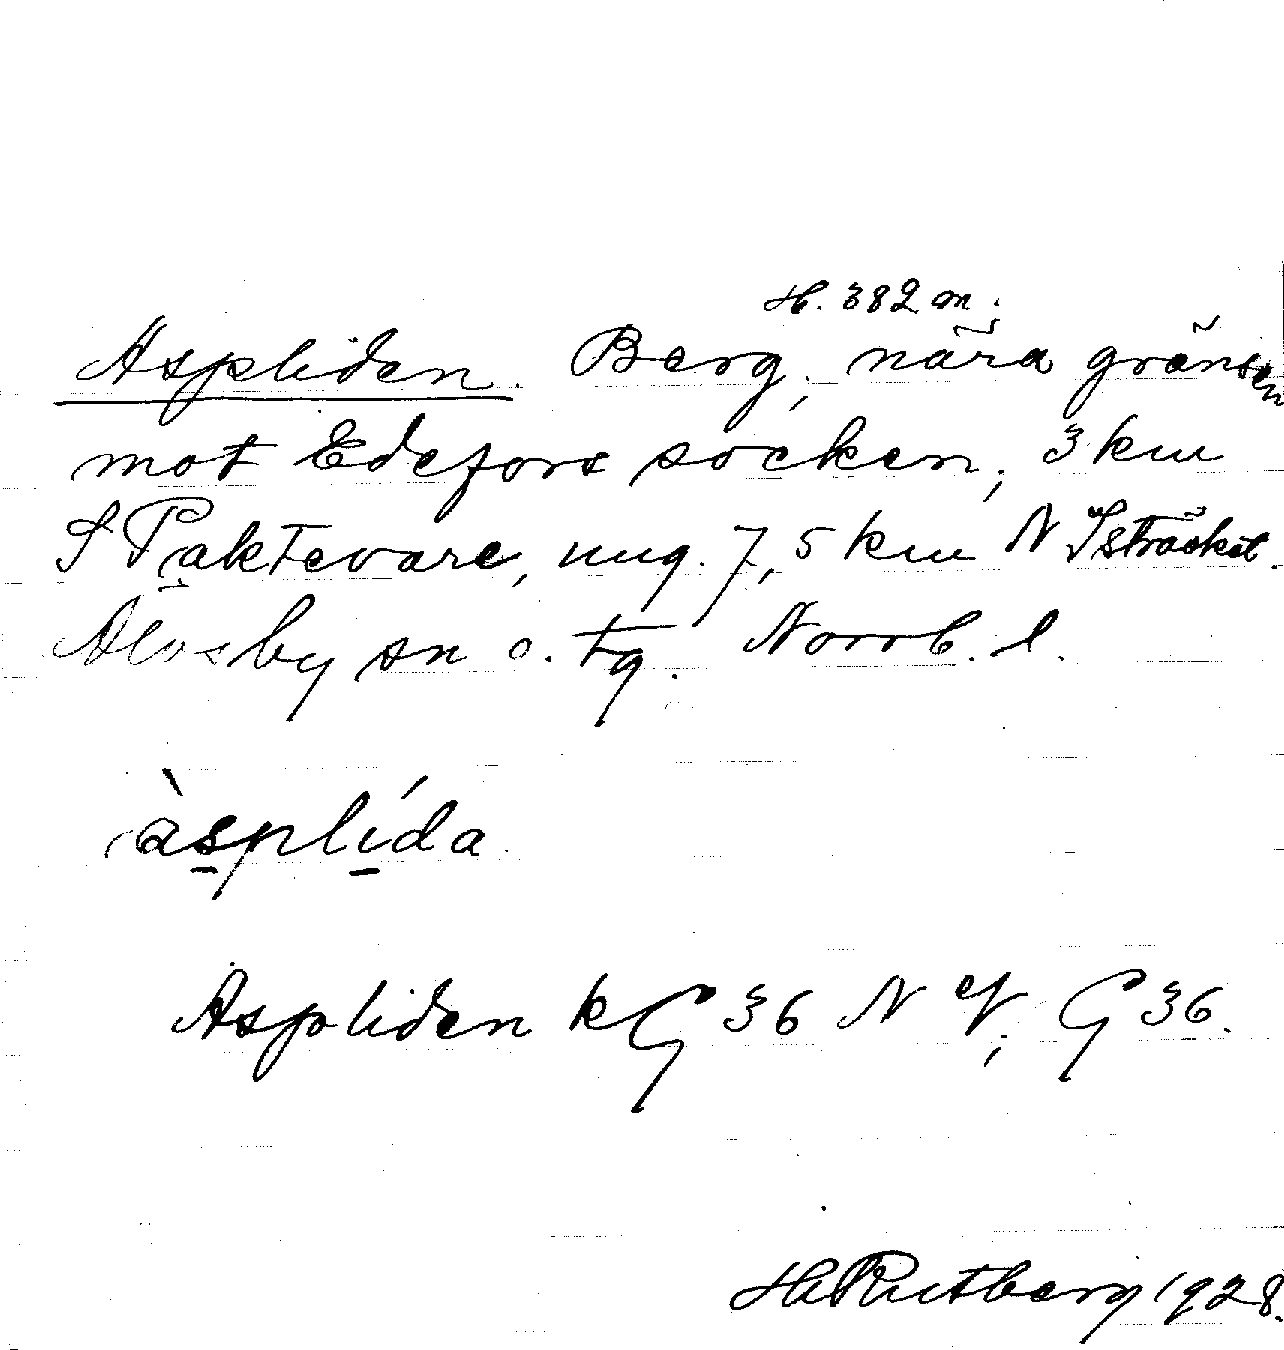 H. 382 m.
Aspliden. Berg, nära gränsen
mot Edefors socken, 3 km
S Paktevare, ung. 7,5 km N Isträsket.
Älvsby sn o. tg. Norrb. l.
àsplída
Aspliden k G 36 N V; G 36.
H Rutberg 1928.